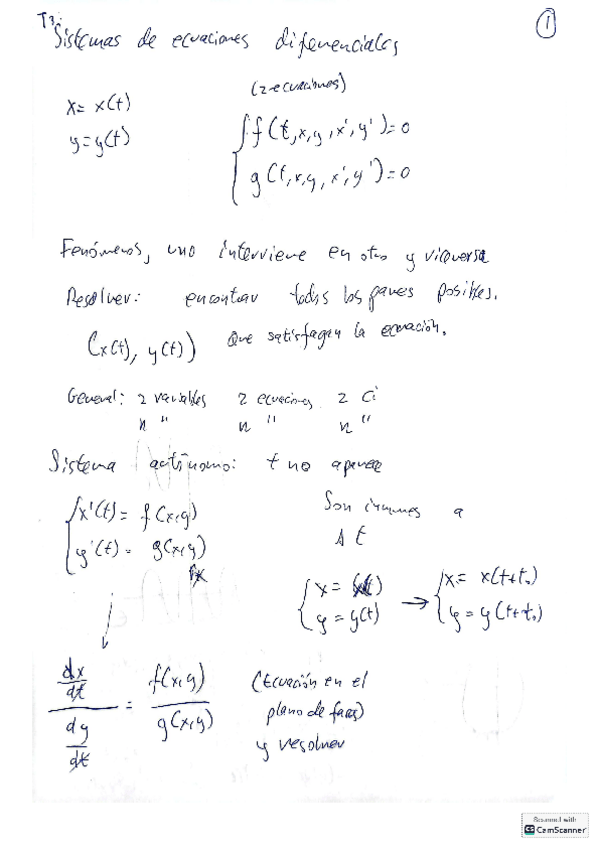 T3:
Sistemas de ecuaciones diferenciales
1
x = x(t)
y = y(t)
(2 ecuaciones)
f(t,x,y,x',y')=0
g(t,x,y,x',y')=0
Fenómenos, uno interviene en otro y viceversa
Resolver: encontrar todos los pares posibles.
(x(t), y(t)) que satisfagan la ecuación.
General: 2 variables 2 ecuaciones 2 Ci
n " n " n "
Sistema autónomo: t no aparece
x'(t) = f(x,y)
y'(t) = g(x,y)
Son inmunes a
Δt
x = x(t)
y = y(t)
→
x = x(t+t₀)
y = y(t+t₀)
dx/dt / dy/dt = f(x,y) / g(x,y)
(Ecuación en el
plano de fases)
y resolver
Scanned with
CS CamScanner